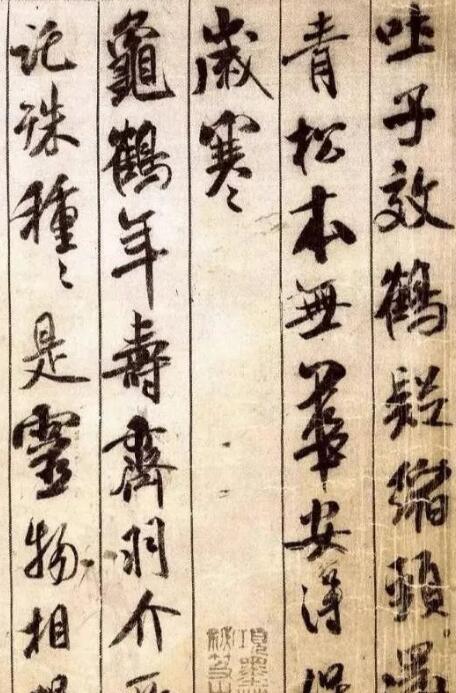 吐子效鶴疑縮頸
青松本無華安得保
歲寒〻
龜鶴年壽齊羽介
託殊種〻是靈物相